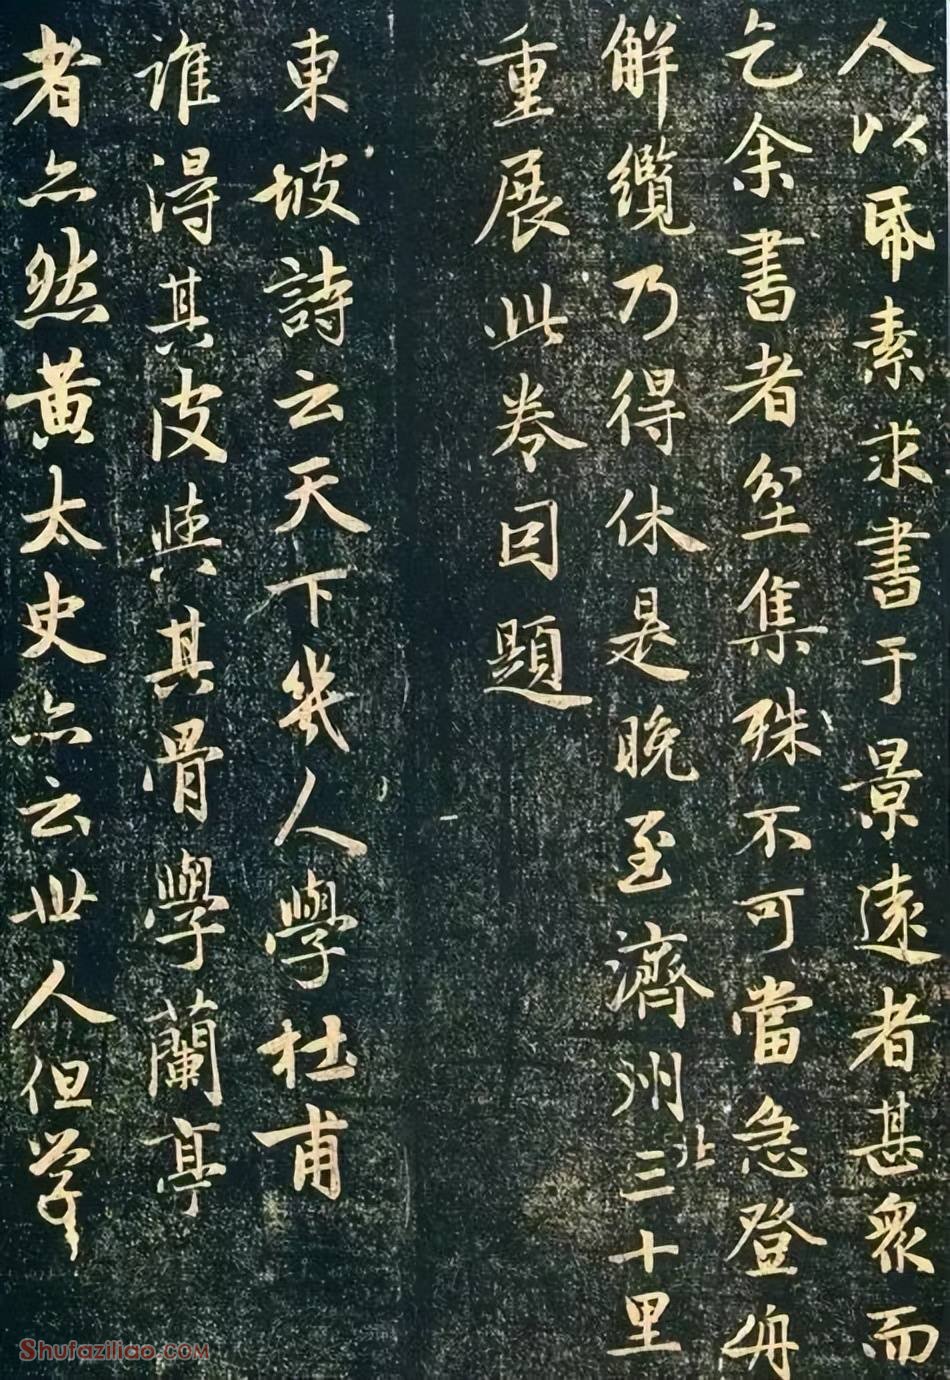 人以帋素求書于景遠者甚衆而
乞余書者坌集殊不可當急登舟
解纜乃得休是晚至濟州北三十里
重展此卷囙題
東坡詩云天下幾人學杜甫
誰得其皮與其骨學蘭亭
者亦然黄太史亦云世人但学
Shufaziliao.COM